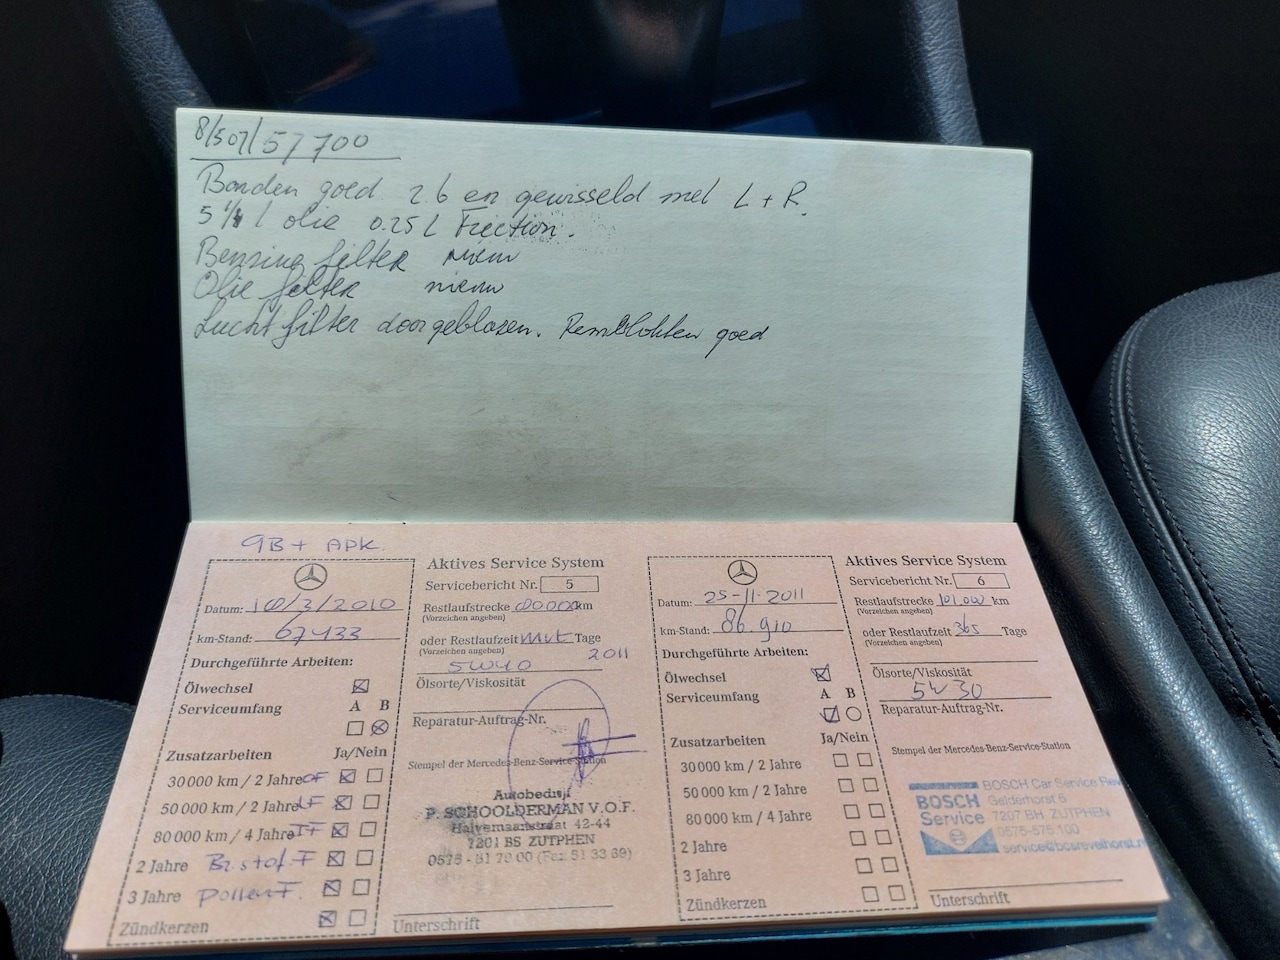 8/507/57700
Banden goed 2.6 en gewisseld met L + R.
5 l olie 0.25 L Friction.
Benzine filter nieuw
Olie filter nieuw
Lucht filter doorgeblazen. Remblokken goed
GB + APK
Aktives Service System
Servicebericht Nr. 5
Datum: 10/3/2010
Restlaufstrecke 80000 km
(Vorzeichen angeben)
km-Stand: 67433
oder Restlaufzeit mrt Tage
(Vorzeichen angeben)
2011
Durchgeführte Arbeiten:
5W40
Ölsorte/Viskosität
Ölwechsel
Serviceumfang A B
Reparatur-Auftrag-Nr.
Zusatzarbeiten Ja/Nein
Stempel der Mercedes-Benz-Service-Station
30 000 km / 2 Jahre OF
50 000 km / 2 Jahre LF
80 000 km / 4 Jahre
2 Jahre Br.stof.F
3 Jahre pollen F.
Zündkerzen
Autobedrijf
P. SCHOOLDERMAN V.O.F.
Halvemaanstraat 42-44
7201 BS ZUTPHEN
0575 - 51 70 00 (Fax 51 33 69)
Unterschrift
Aktives Service System
Servicebericht Nr. 6
Datum: 25-11-2011
Restlaufstrecke 101.000 km
(Vorzeichen angeben)
km-Stand: 86.910
oder Restlaufzeit 365 Tage
(Vorzeichen angeben)
Durchgeführte Arbeiten:
Ölsorte/Viskosität
Ölwechsel
5W30
Serviceumfang A B
Reparatur-Auftrag-Nr.
Zusatzarbeiten Ja/Nein
Stempel der Mercedes-Benz-Service-Station
30 000 km / 2 Jahre
50 000 km / 2 Jahre
80 000 km / 4 Jahre
2 Jahre
3 Jahre
Zündkerzen
BOSCH
Service
BOSCH Car Service Rev
Gelderhorst 6
7207 BH ZUTPHEN
0575-575 100
service@bcsrevelhorst.n
Unterschrift